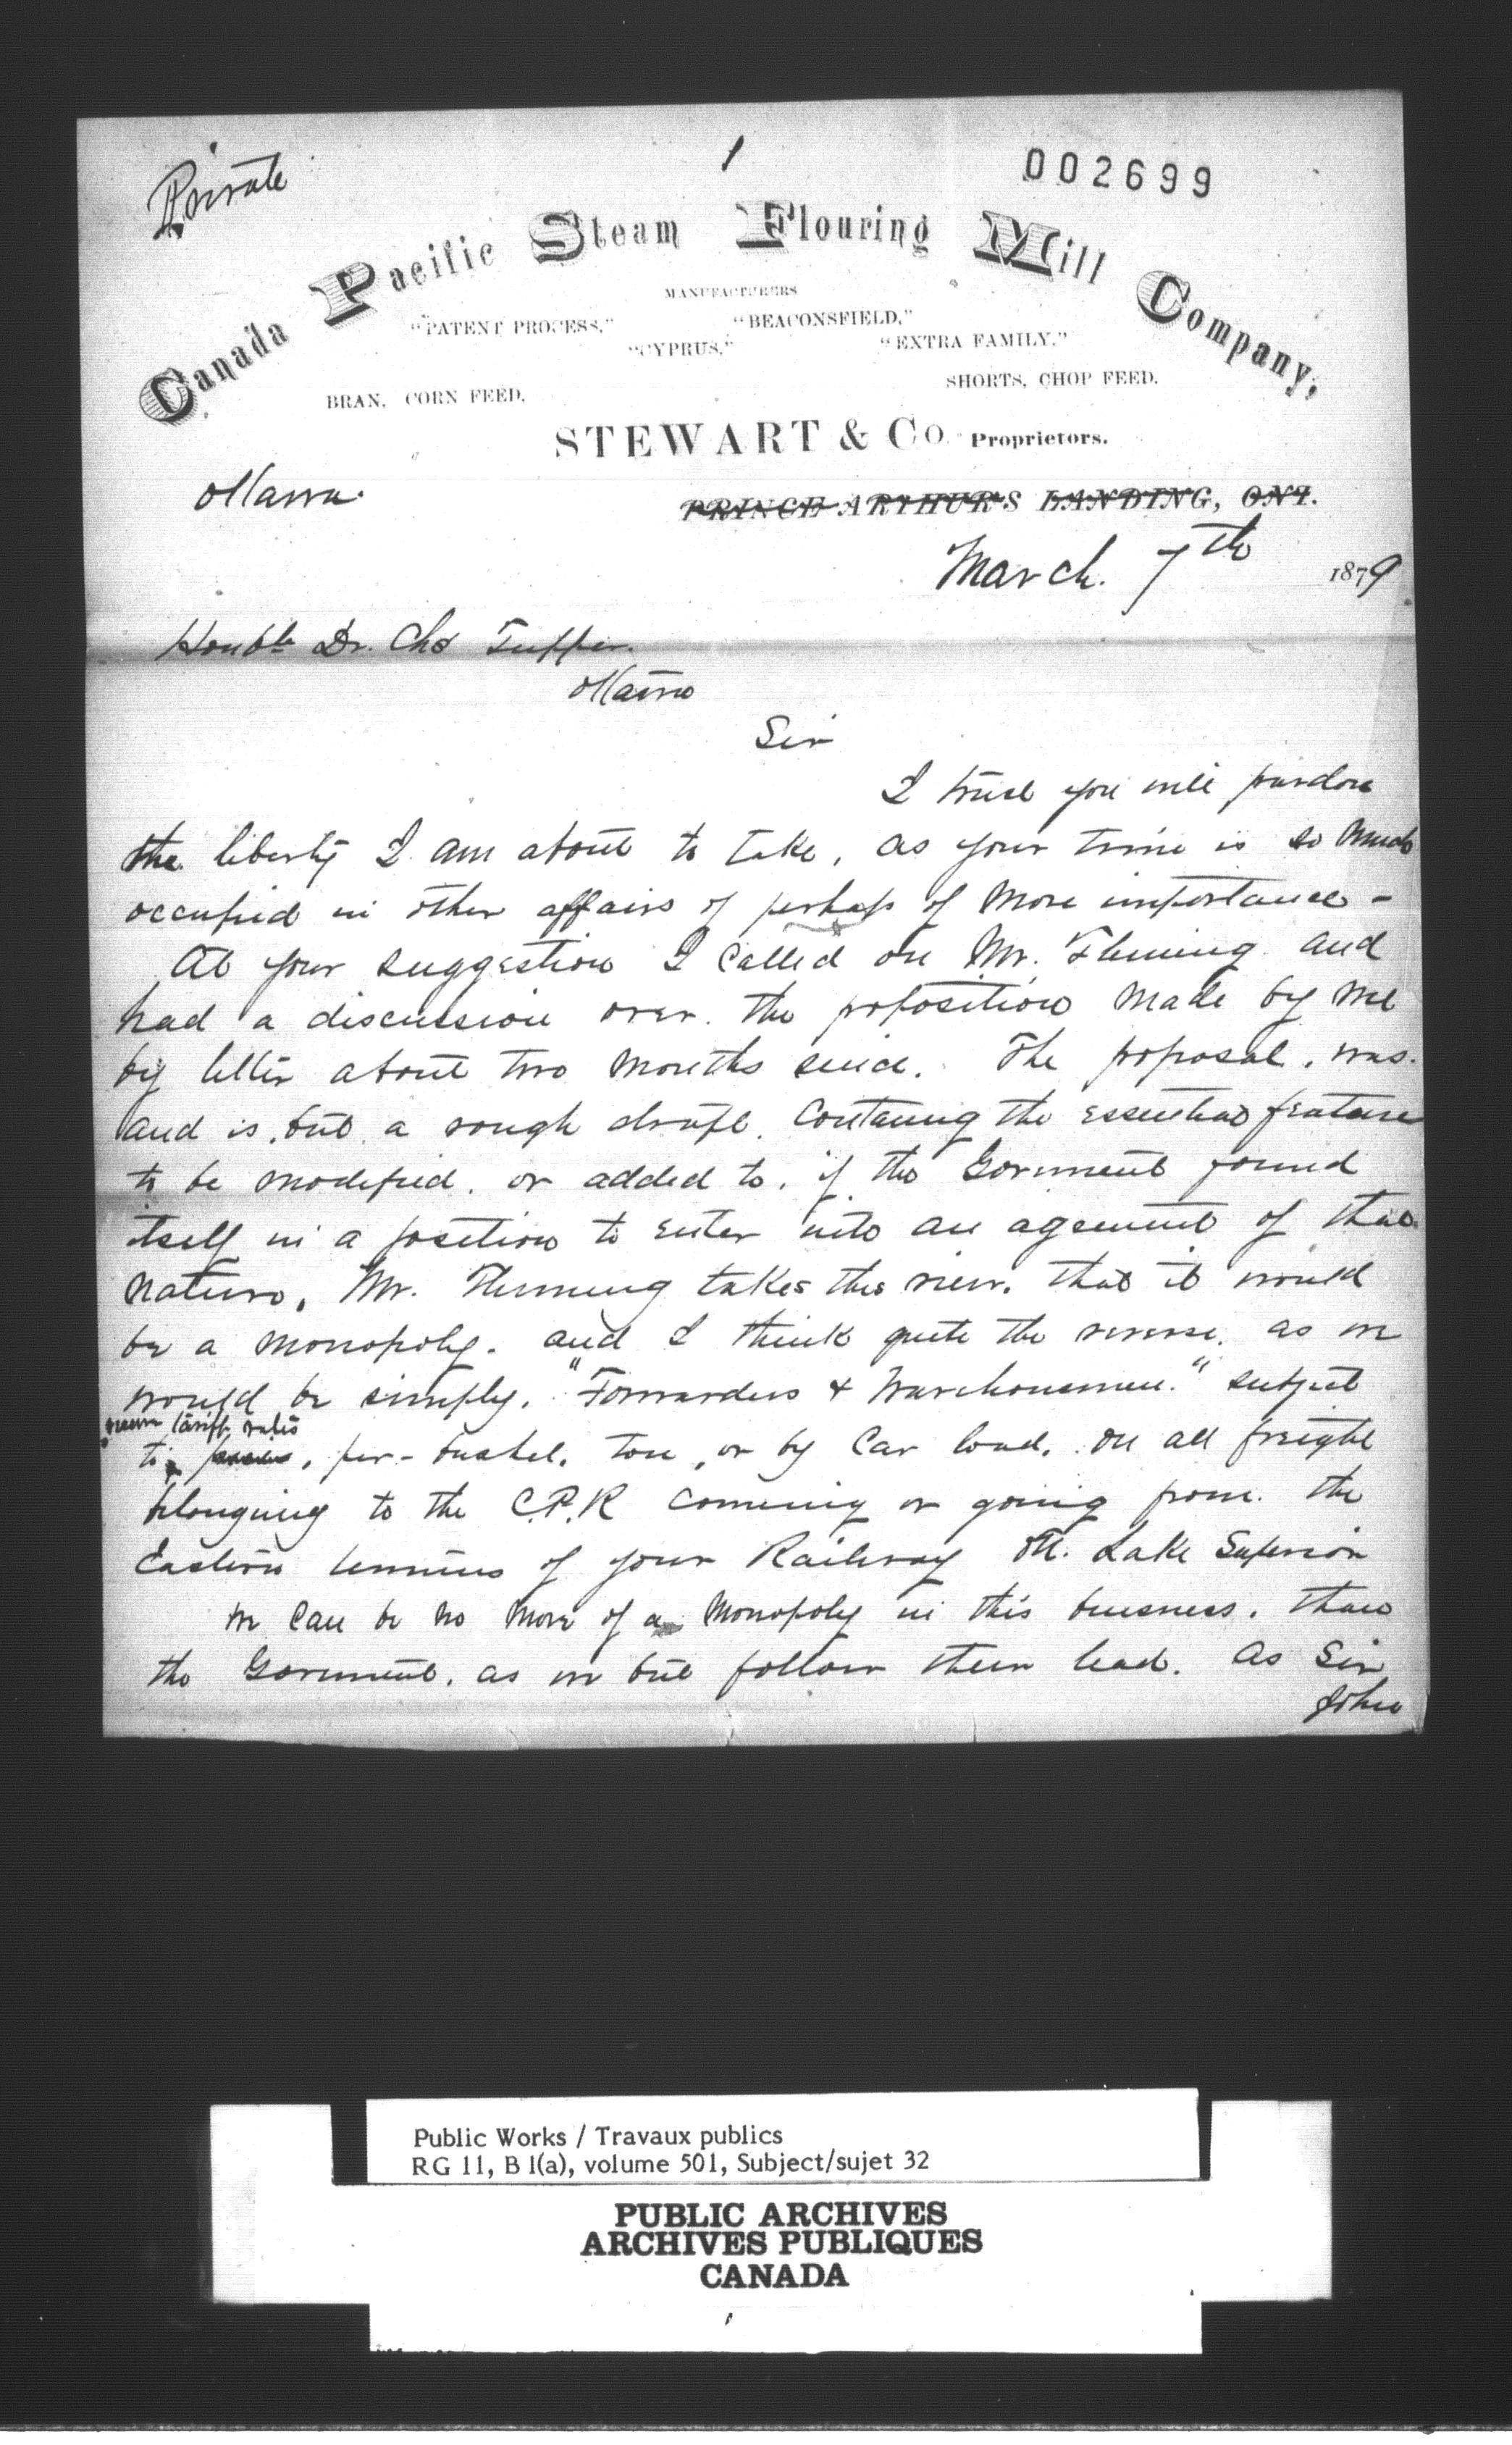 Private
1
002699
Canada Pacific Steam Flouring Mill Company,
MANUFACTURERS
"PATENT PROCESS," "BEACONSFIELD,"
"CYPRUS," "EXTRA FAMILY."
BRAN, CORN FEED, SHORTS, CHOP FEED.
STEWART & Co. Proprietors.
Ottawa
PRINCE ARTHUR'S LANDING, ONT.
March. 7th 1879
Honble Dr. Chs Tupper.
Ottawa
Sir
I trust you will pardon
the liberty I am about to take, as your time is so much
occupied in other affairs of perhaps of more importance -
At your suggestion I called on Mr. Fleming and
had a discussion over the proposition made by me
by letter about two months since. The proposal, was.
and is, but a rough draft. Contaning the essential feature
to be modified, or added to, if the Goverment found
itself in a position to enter into an agreement of that
nature, Mr. Fleming takes the view. that it would
be a monopoly. and I think quite the reverse. as we
would be simply, "Forwarders & Warehousemen." subject
tariff rates
to , per- bushel, ton, or by Car load. on all freight
belonging to the C.P.R comeing or going from the
Eastern terminus of your Railway on Lake Superior
we can be no more of a Monopoly in this business, than
the Goverment, as we but follow their lead. As Sir
John
Public Works / Travaux publics
RG 11, B 1(a), volume 501, Subject/sujet 32
PUBLIC ARCHIVES
ARCHIVES PUBLIQUES
CANADA